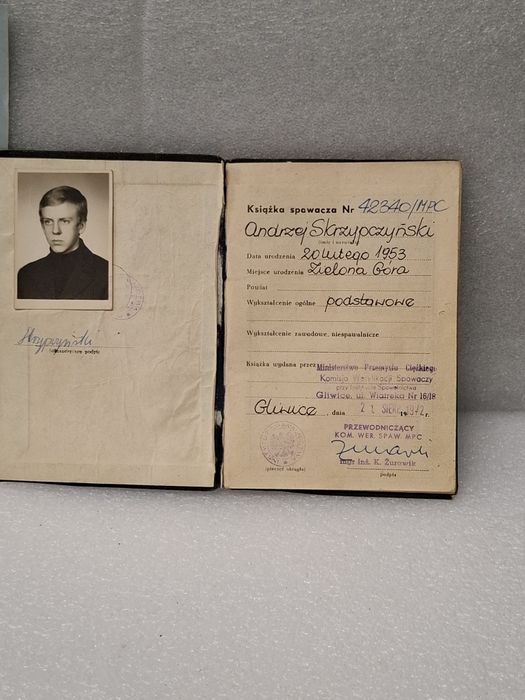 Skrzypczyński
(własnoręczny podpis)
Książka spawacza Nr 42340/MPC
Andrzej Skrzypczyński
(imię i nazwisko)
Data urodzenia 20 lutego 1953
Miejsce urodzenia Zielona Góra
Powiat
Wykształcenie ogólne podstawowe
Wykształcenie zawodowe, niespawalnicze
Książka wydana przez Ministerstwo Przemysłu Ciężkiego
Komisja Weryfikacji Spawaczy
przy Instytucie Spawalnictwa
Gliwice, ul. Wiatraka Nr 16/18
Gliwice, dnia 21 SIER. 1972 r.
PRZEWODNICZĄCY
KOM. WER. SPAW. MPC
mgr inż. K. Żurowik
(pieczęć okrągła) podpis